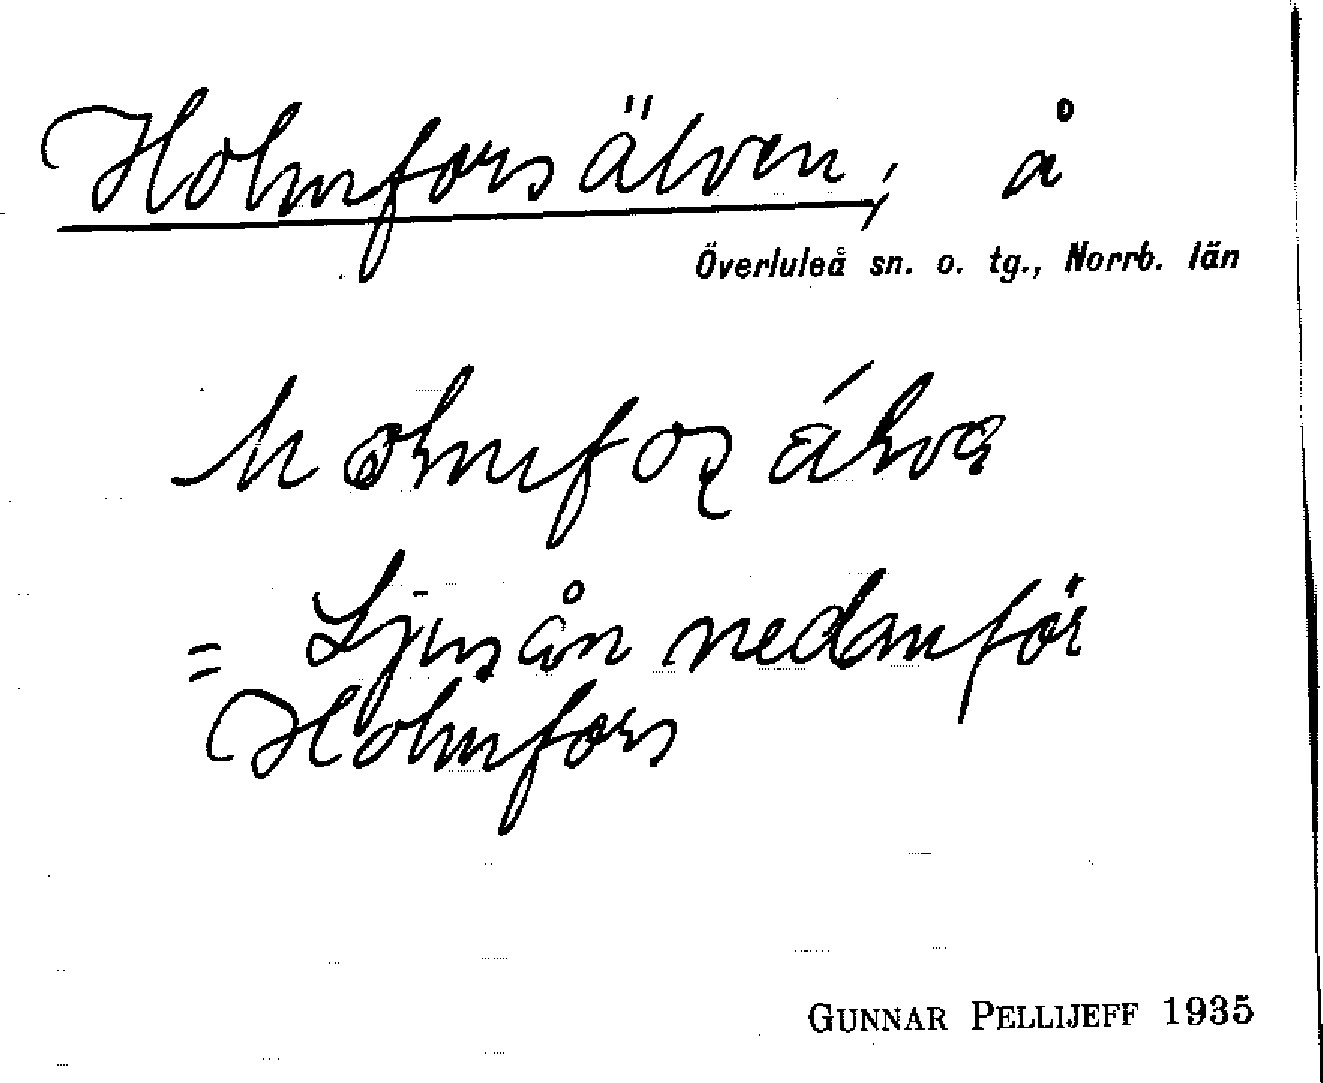 Holmforsälven, å
Överluleå sn. o. tg., Norrb. län
= Ljusån nedanför
Holmfors
GUNNAR PELLIJEFF 1935